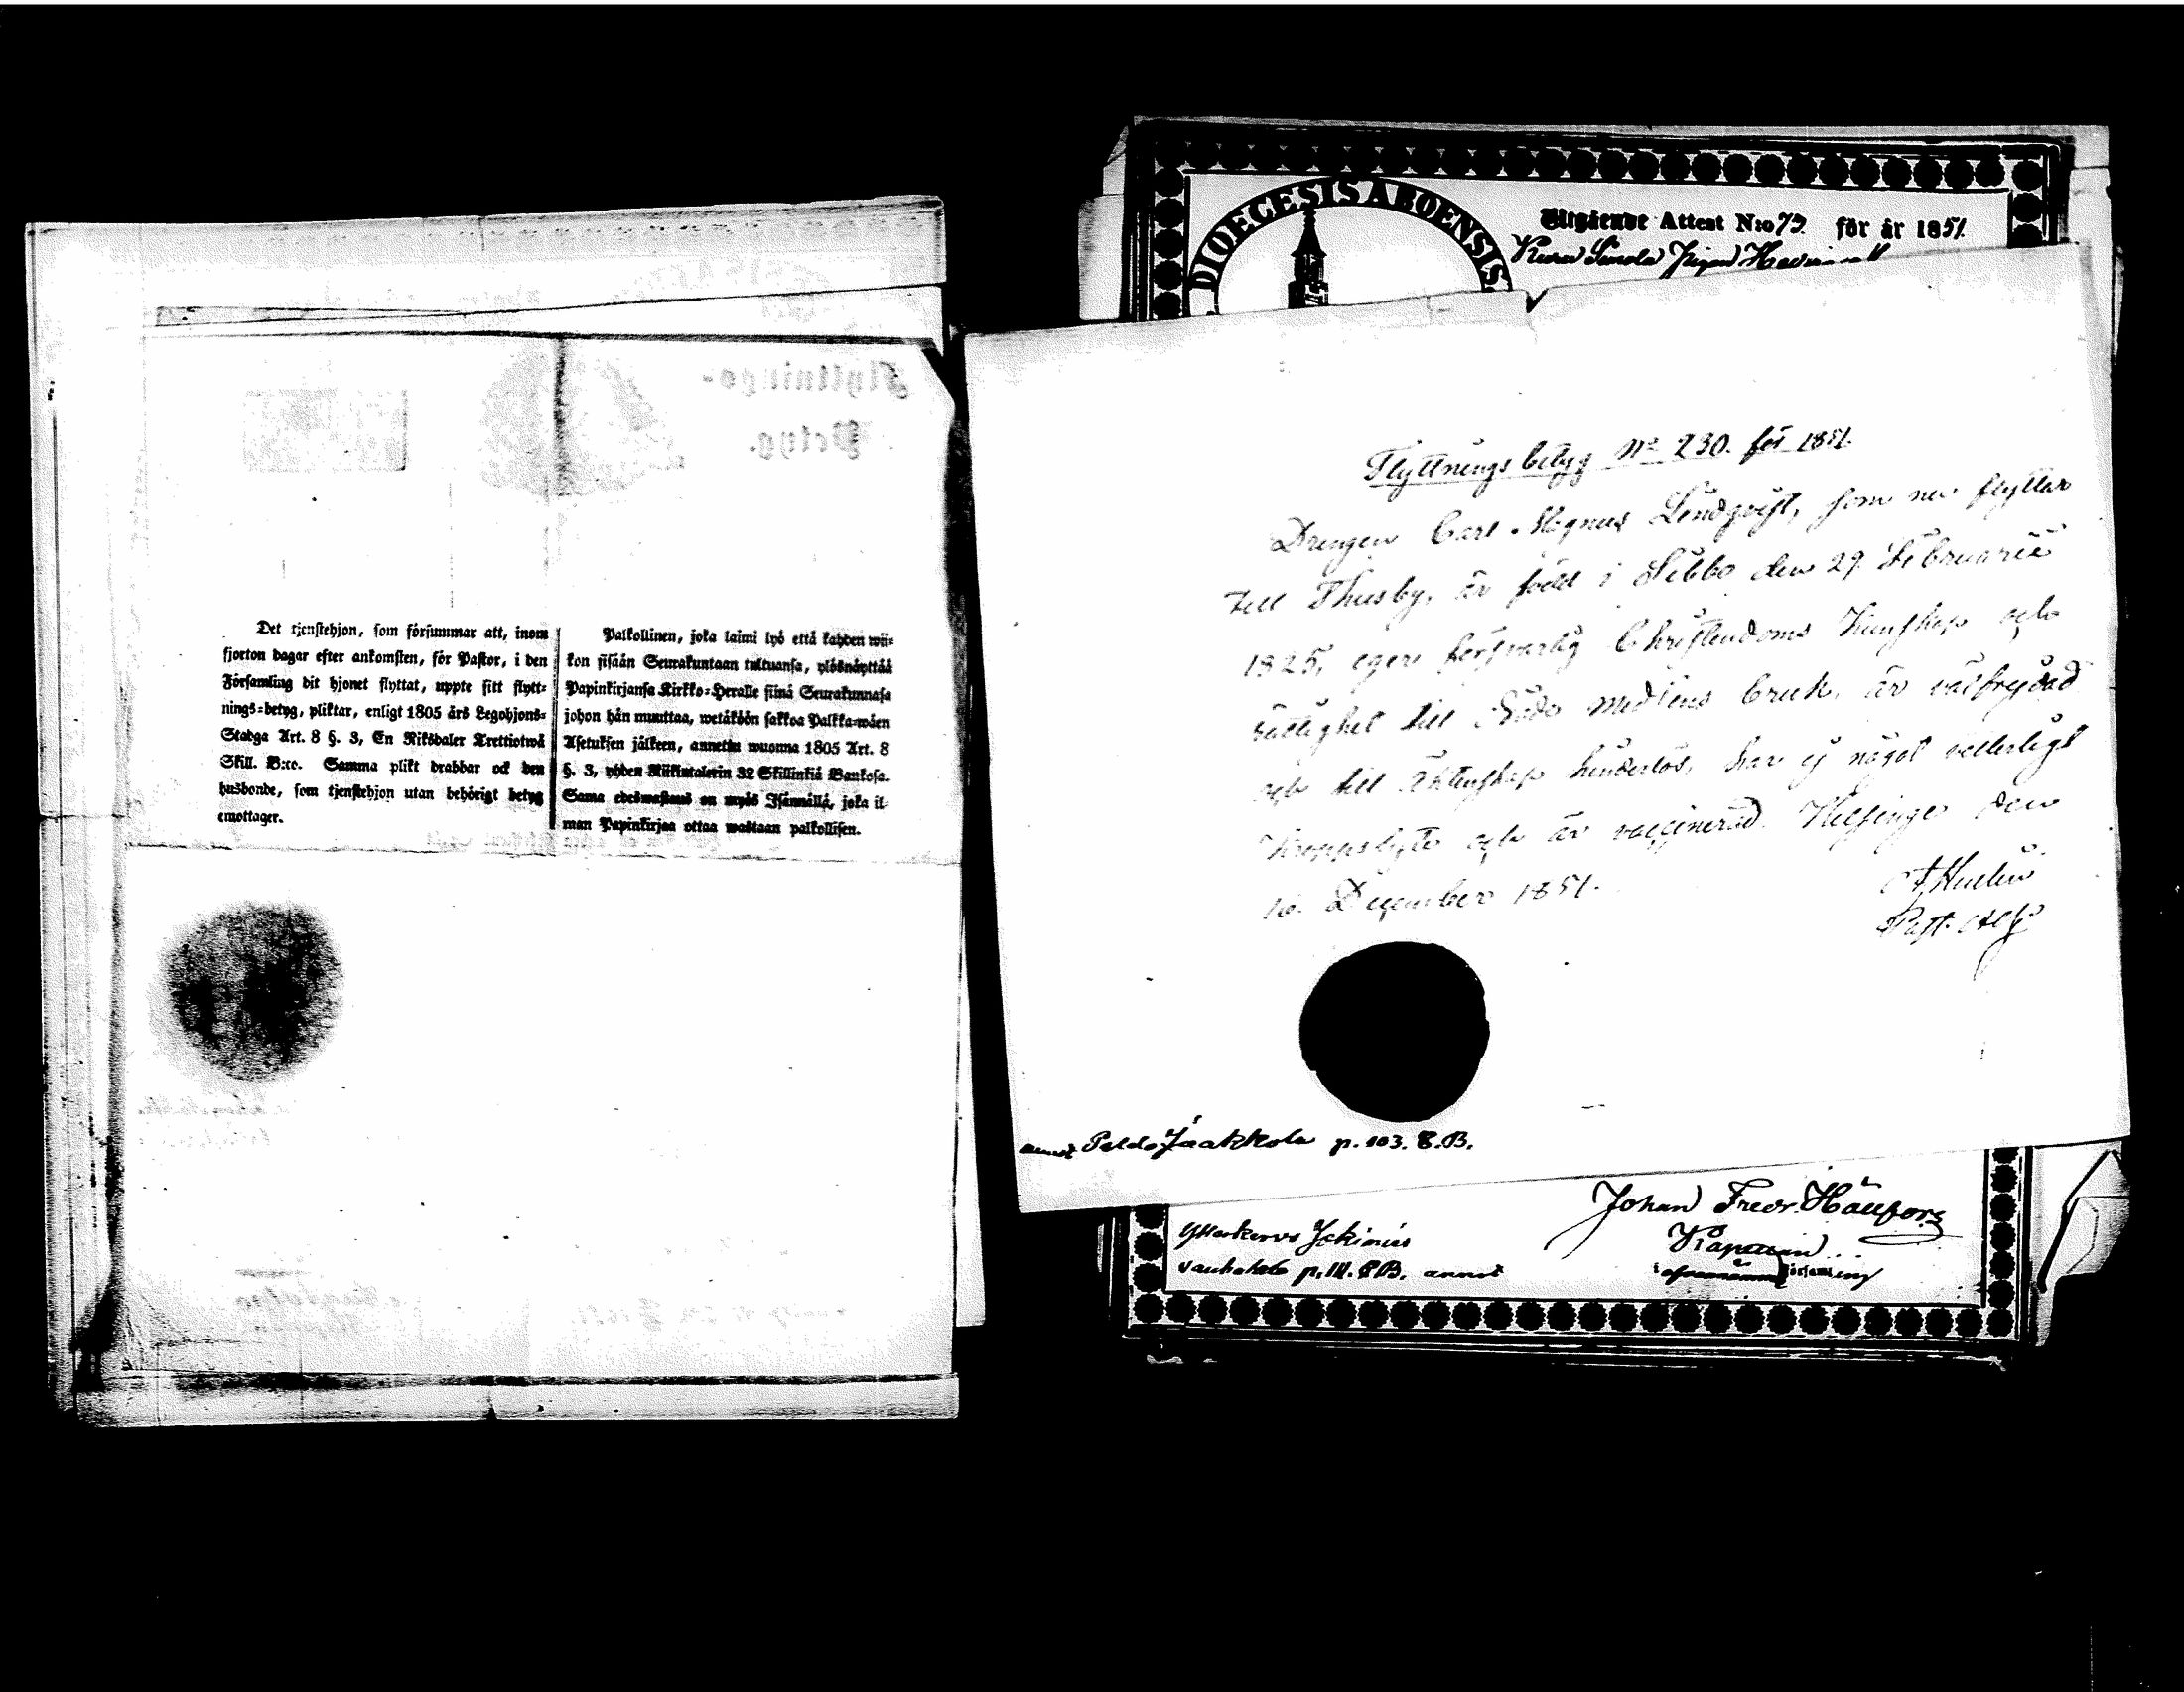 Det tjenstehjon, som försummar att, inom
fjorton dagar efter ankomsten, för Pastor, i den
Församling dit hjonet flyttat, uppte sitt flytt-
nings-betyg, pliktar, enligt 1805 års Legohjons-
Stadga Art. 8 §. 3, En Riksdaler Trettiotwå
Skill. B:co. Samma plikt drabbar ock den
husbonde, som tjenstehjon utan behörigt betyg
emottager.
Palkollinen, joka laimi lyö että kahden wii-
kon sisään Seurakuntaan tultuansa, ylösnäyttää
Papinkirjansa Kirkko-Heralle siinä Seurakunnasa
johon hän muuttaa, wetäköön sakkoa Palkka-wäen
Asetuksen jälkeen, annettu wuonna 1805 Art. 8
§. 3, yhden Riikintalerin 32 Skillinkiä Bankosa.
Sama edeswastaus on myös Isännällä, joka il-
man Papinkirjaa ottaa wastaan palkollisen.
DIOECESIS ABOENSIS
Utgående Attest N:o 79. för år 1851.
Flyttningsbetyg No 230. för 1851.
Drengen Carl Magnus Lindqvist, som nu flyttar
till Thusby, är född i Sibbo den 29 Februarii
1825, eger försvarlig Christendoms Kunskap och
rättighet till Nådemedlens bruk, är välfrejdad
och till Äktenskap hinderlös, har ej något vetterligt
kroppslyte och är vaccinerad. Helsinge den
16. December 1851.
Past. Adj.
Peldo Jaakkola p. 103. C.B.
Johan Fredr. Hällfors
Kaplan
p. 111. C.B.